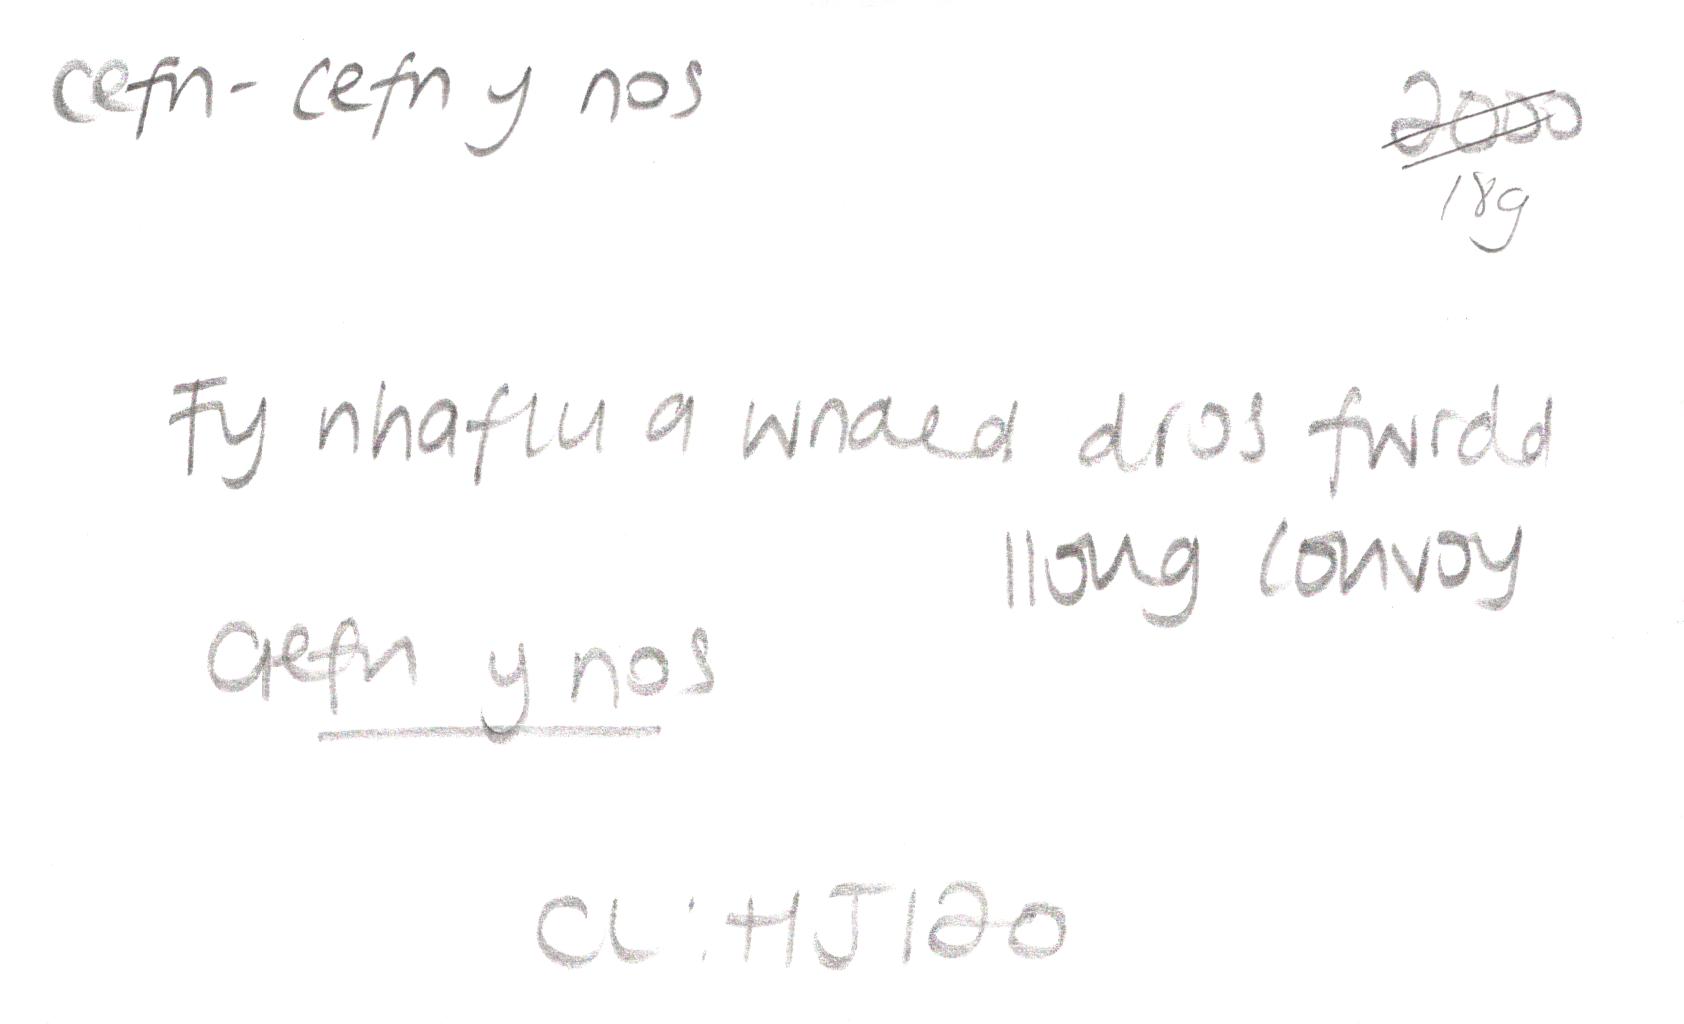 cefn - cefn y nos
2000
189
Fy nhaflu a wnaed dros fwrdd
llong convoy
Gefn y nos
CL:HJ120